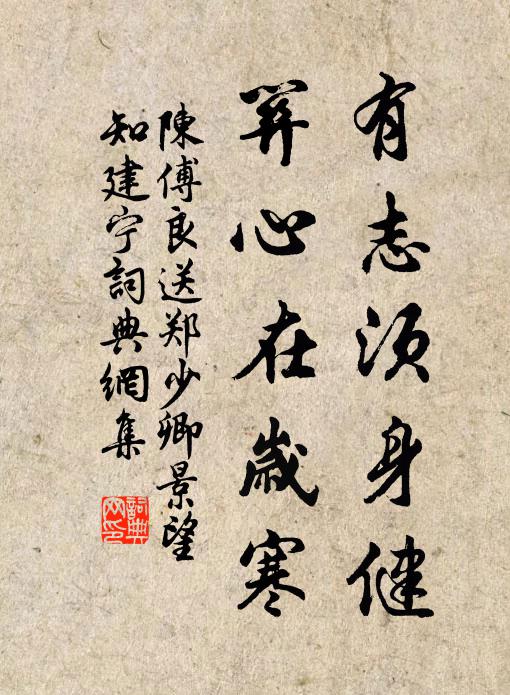 有志須身健
關心在歲寒
陳傅良送郑少卿景望
知建宁詞典網集
詞典
网印